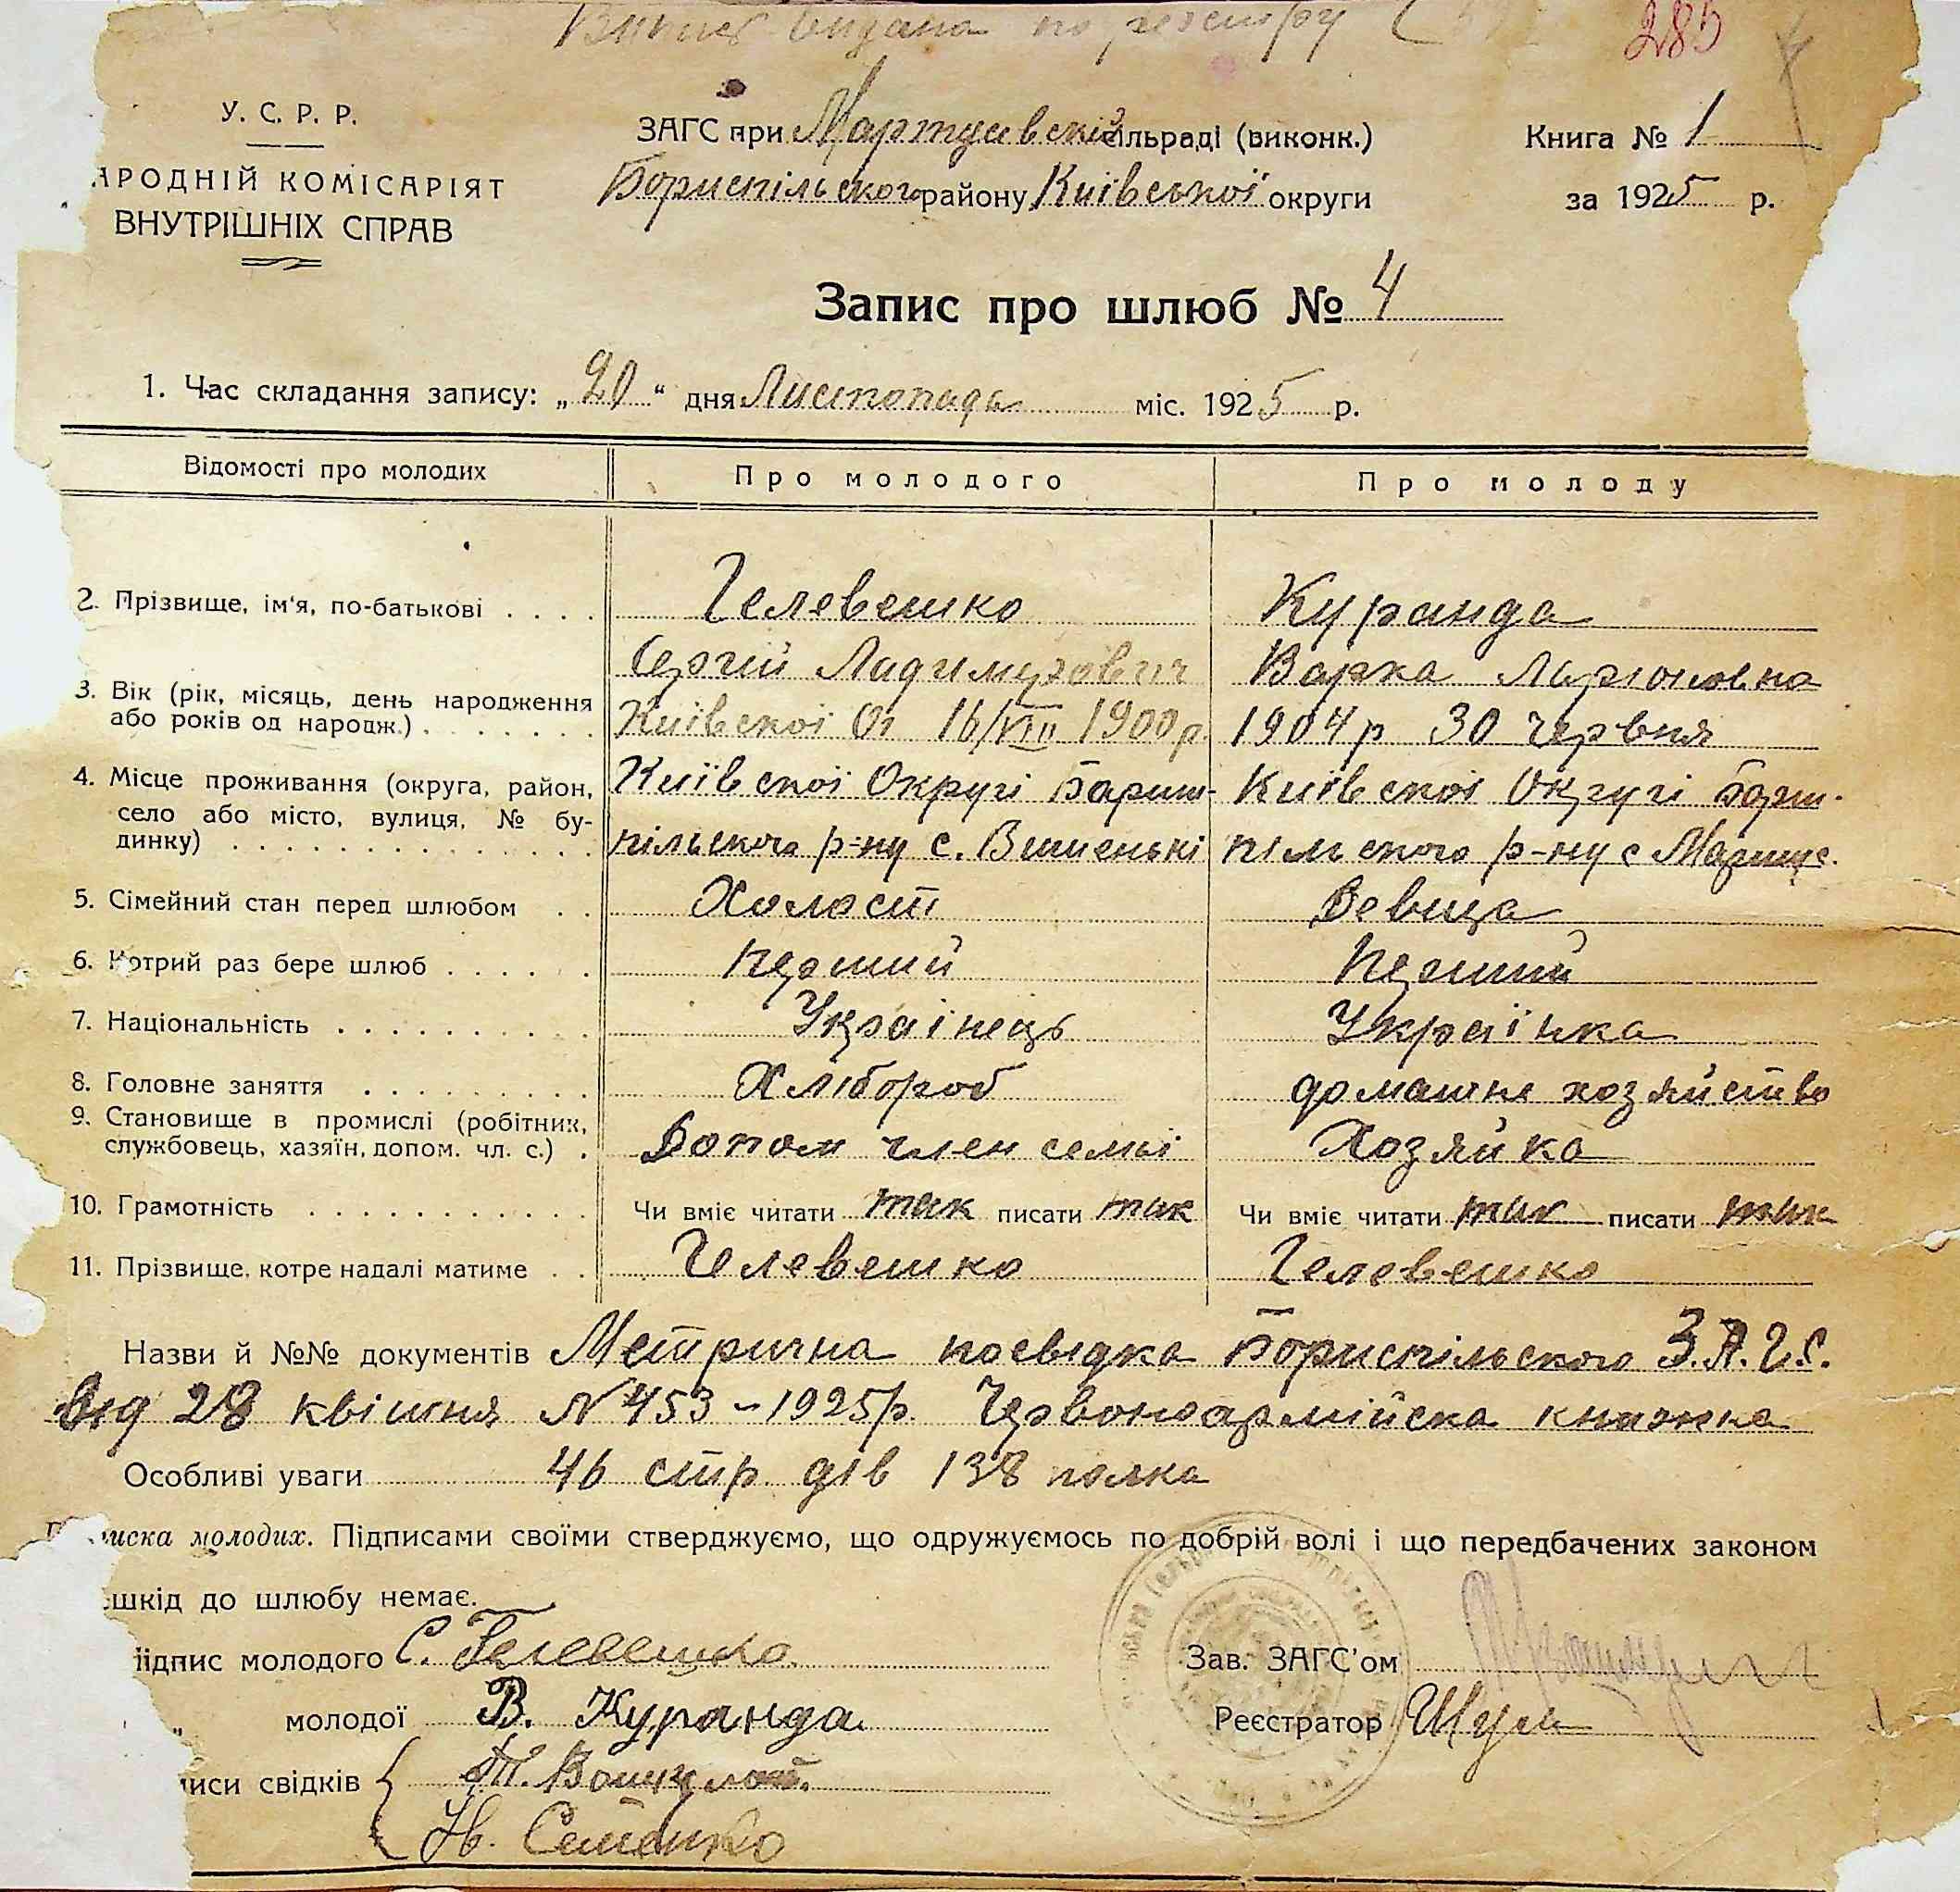 Випис видана по реєстру
285
У. С. Р. Р.
АРОДНІЙ КОМІСАРІЯТ
ВНУТРІШНІХ СПРАВ
ЗАГС при Мартусівскій сільраді (виконк.)
Бориспільского району Київської округи
Книга № 1
за 1925 р.
Запис про шлюб № 4
1. Час складання запису: „20“ дня Листопада міс. 1925 р.
Відомості про молодих Про молодого Про молоду
2. Прізвище, ім'я, по-батькові . . . . Гелевешко Куранда
Сергій Ладимурович Варка Ларіоновна
3. Вік (рік, місяць, день народження або років од народж.) . . . . . . . Київскоі Ог 16/VIII 1900 р. 1904 р 30 червня
4. Місце проживання (округа, район, село або місто, вулиця, № будинку) . . . . . . . . . . . . . .
Київскої Округі Барис- Київскоі Округі Борис-
пільского р-ну с. Вишенькі пільского р-ну с Мартус.
5. Сімейний стан перед шлюбом . . Холост Девица
6. Котрий раз бере шлюб . . . . . . Перший Перший
7. Національність . . . . . . . . . . Українець Українка
8. Головне заняття . . . . . . . . . Хлібороб домашне хозяйство
9. Становище в промислі (робітник, службовець, хазяїн, допом. чл. с.) . Допом член семьі Хозяйка
10. Грамотність . . . . . . . . . . . Чи вміє читати так писати так Чи вміє читати так писати так
11. Прізвище, котре надалі матиме . . Гелевешко Гелевешко
Назви й №№ документів Метрична посвідка Бориспільского З.А.Г.С.
від 28 квітня N 453 - 1925 р. Червоноармійска книжка
Особливі уваги 46 стр. див 138 полка
иска молодих. Підписами своїми стверджуємо, що одружуємось по добрій волі і що передбачених законом
шкід до шлюбу немає.
ідпис молодого С. Гелевешко
„ молодої В. Куранда
Зав. ЗАГС'ом
Реєстратор
иси свідків
Семенко